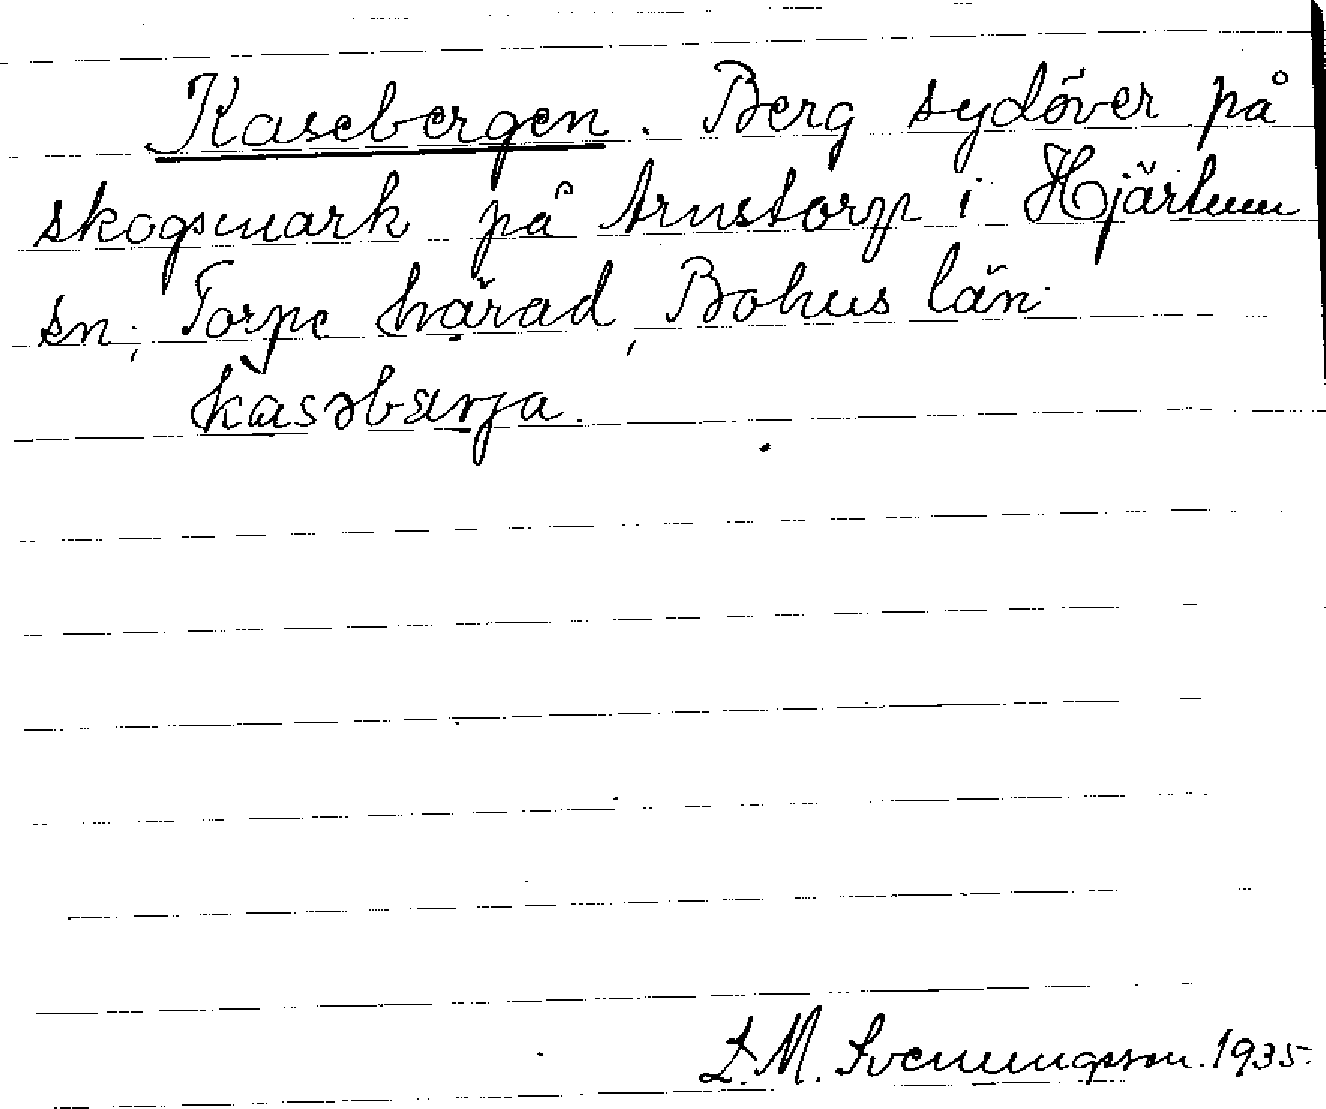 Kasebergen. Berg sydöver på
skogsmark på Arnstorp i Hjärtum
sn, Torpe härad, Bohus län.
kasəbærja.
L. M. Svenungsson. 1935.